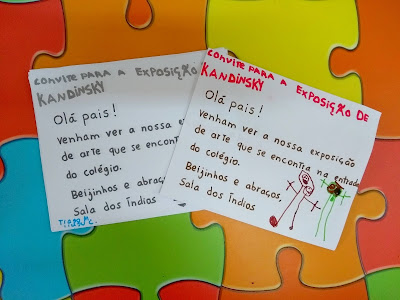 CONVITE PARA A EXPOSIÇÃO
KANDINSKY
Olá pais!
Venham ver a nossa
de arte que se encont
do colégio.
Beijinhos e abraç
Sala dos Índios
CONVITE PARA A EXPOSIÇÃO DE
KANDINSKY
Olá pais!
Venham ver a nossa exposição
de arte que se encontra na entrada
do colégio.
Beijinhos e abraços,
Sala dos Índios